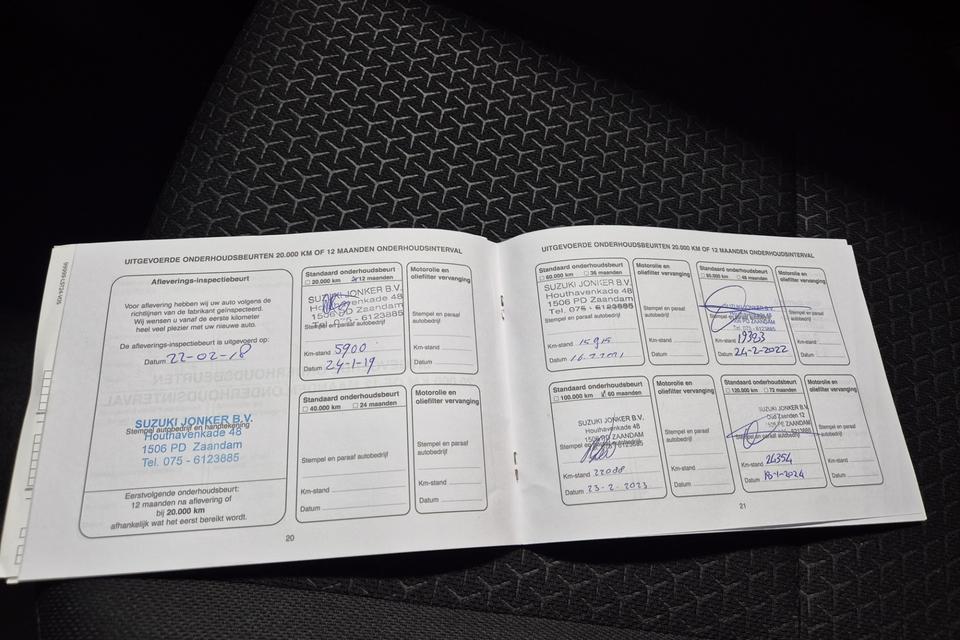 99999-LSP24-V05
UITGEVOERDE ONDERHOUDSBEURTEN 20.000 KM OF 12 MAANDEN ONDERHOUDSINTERVAL
Afleverings-inspectiebeurt
Voor aflevering hebben wij uw auto volgens de
richtlijnen van de fabrikant geïnspecteerd.
Wij wensen u vanaf de eerste kilometer
heel veel plezier met uw nieuwe auto.
De afleverings-inspectiebeurt is uitgevoerd op:
Datum 22-02-18
SUZUKI JONKER B.V.
Stempel autobedrijf en handtekening
Houthavenkade 48
1506 PD Zaandam
Tel. 075 - 6123885
Eerstvolgende onderhoudsbeurt:
12 maanden na aflevering of
bij 20.000 km
afhankelijk wat het eerst bereikt wordt.
Standaard onderhoudsbeurt
20.000 km 12 maanden
SUZUKI JONKER B.V.
Houthavenkade 48
1506 PD Zaandam
Tel. 075 - 6123885
Stempel en paraaf autobedrijf
Km-stand 5900
Datum 24-1-19
Motorolie en
oliefilter vervanging
Stempel en paraaf
autobedrijf
Km-stand
Datum
Standaard onderhoudsbeurt
40.000 km 24 maanden
Stempel en paraaf autobedrijf
Km-stand
Datum
Motorolie en
oliefilter vervanging
Stempel en paraaf
autobedrijf
Km-stand
Datum
20
UITGEVOERDE ONDERHOUDSBEURTEN 20.000 KM OF 12 MAANDEN ONDERHOUDSINTERVAL
Standaard onderhoudsbeurt
60.000 km 36 maanden
SUZUKI JONKER B.V.
Houthavenkade 48
1506 PD Zaandam
Tel. 075 - 6123885
Stempel en paraaf autobedrijf
Km-stand 15915
Datum
Motorolie en
oliefilter vervanging
Stempel en paraaf
autobedrijf
Km-stand
Datum
Standaard onderhoudsbeurt
80.000 km 48 maanden
SUZUKI JONKER B.V.
1506 PD ZAANDAM
Tel. 075-6123885
Km-stand 19323
Datum 24-2-2022
Motorolie en
oliefilter vervanging
Stempel en paraaf
autobedrijf
Km-stand
Datum
Standaard onderhoudsbeurt
100.000 km 60 maanden
SUZUKI JONKER B.V.
Houthavenkade 48
1506 PD ZAANDAM
Stempel en paraaf autobedrijf
Km-stand 22008
Datum 23-2-2023
Motorolie en
oliefilter vervanging
Stempel en paraaf
autobedrijf
Km-stand
Datum
Standaard onderhoudsbeurt
120.000 km 72 maanden
SUZUKI JONKER B.V.
Oud Zaenden 12
Stempel en paraaf autobedrijf
Km-stand 24354
Datum 18-1-2024
Motorolie en
oliefilter vervanging
Stempel en paraaf
autobedrijf
Km-stand
Datum
21